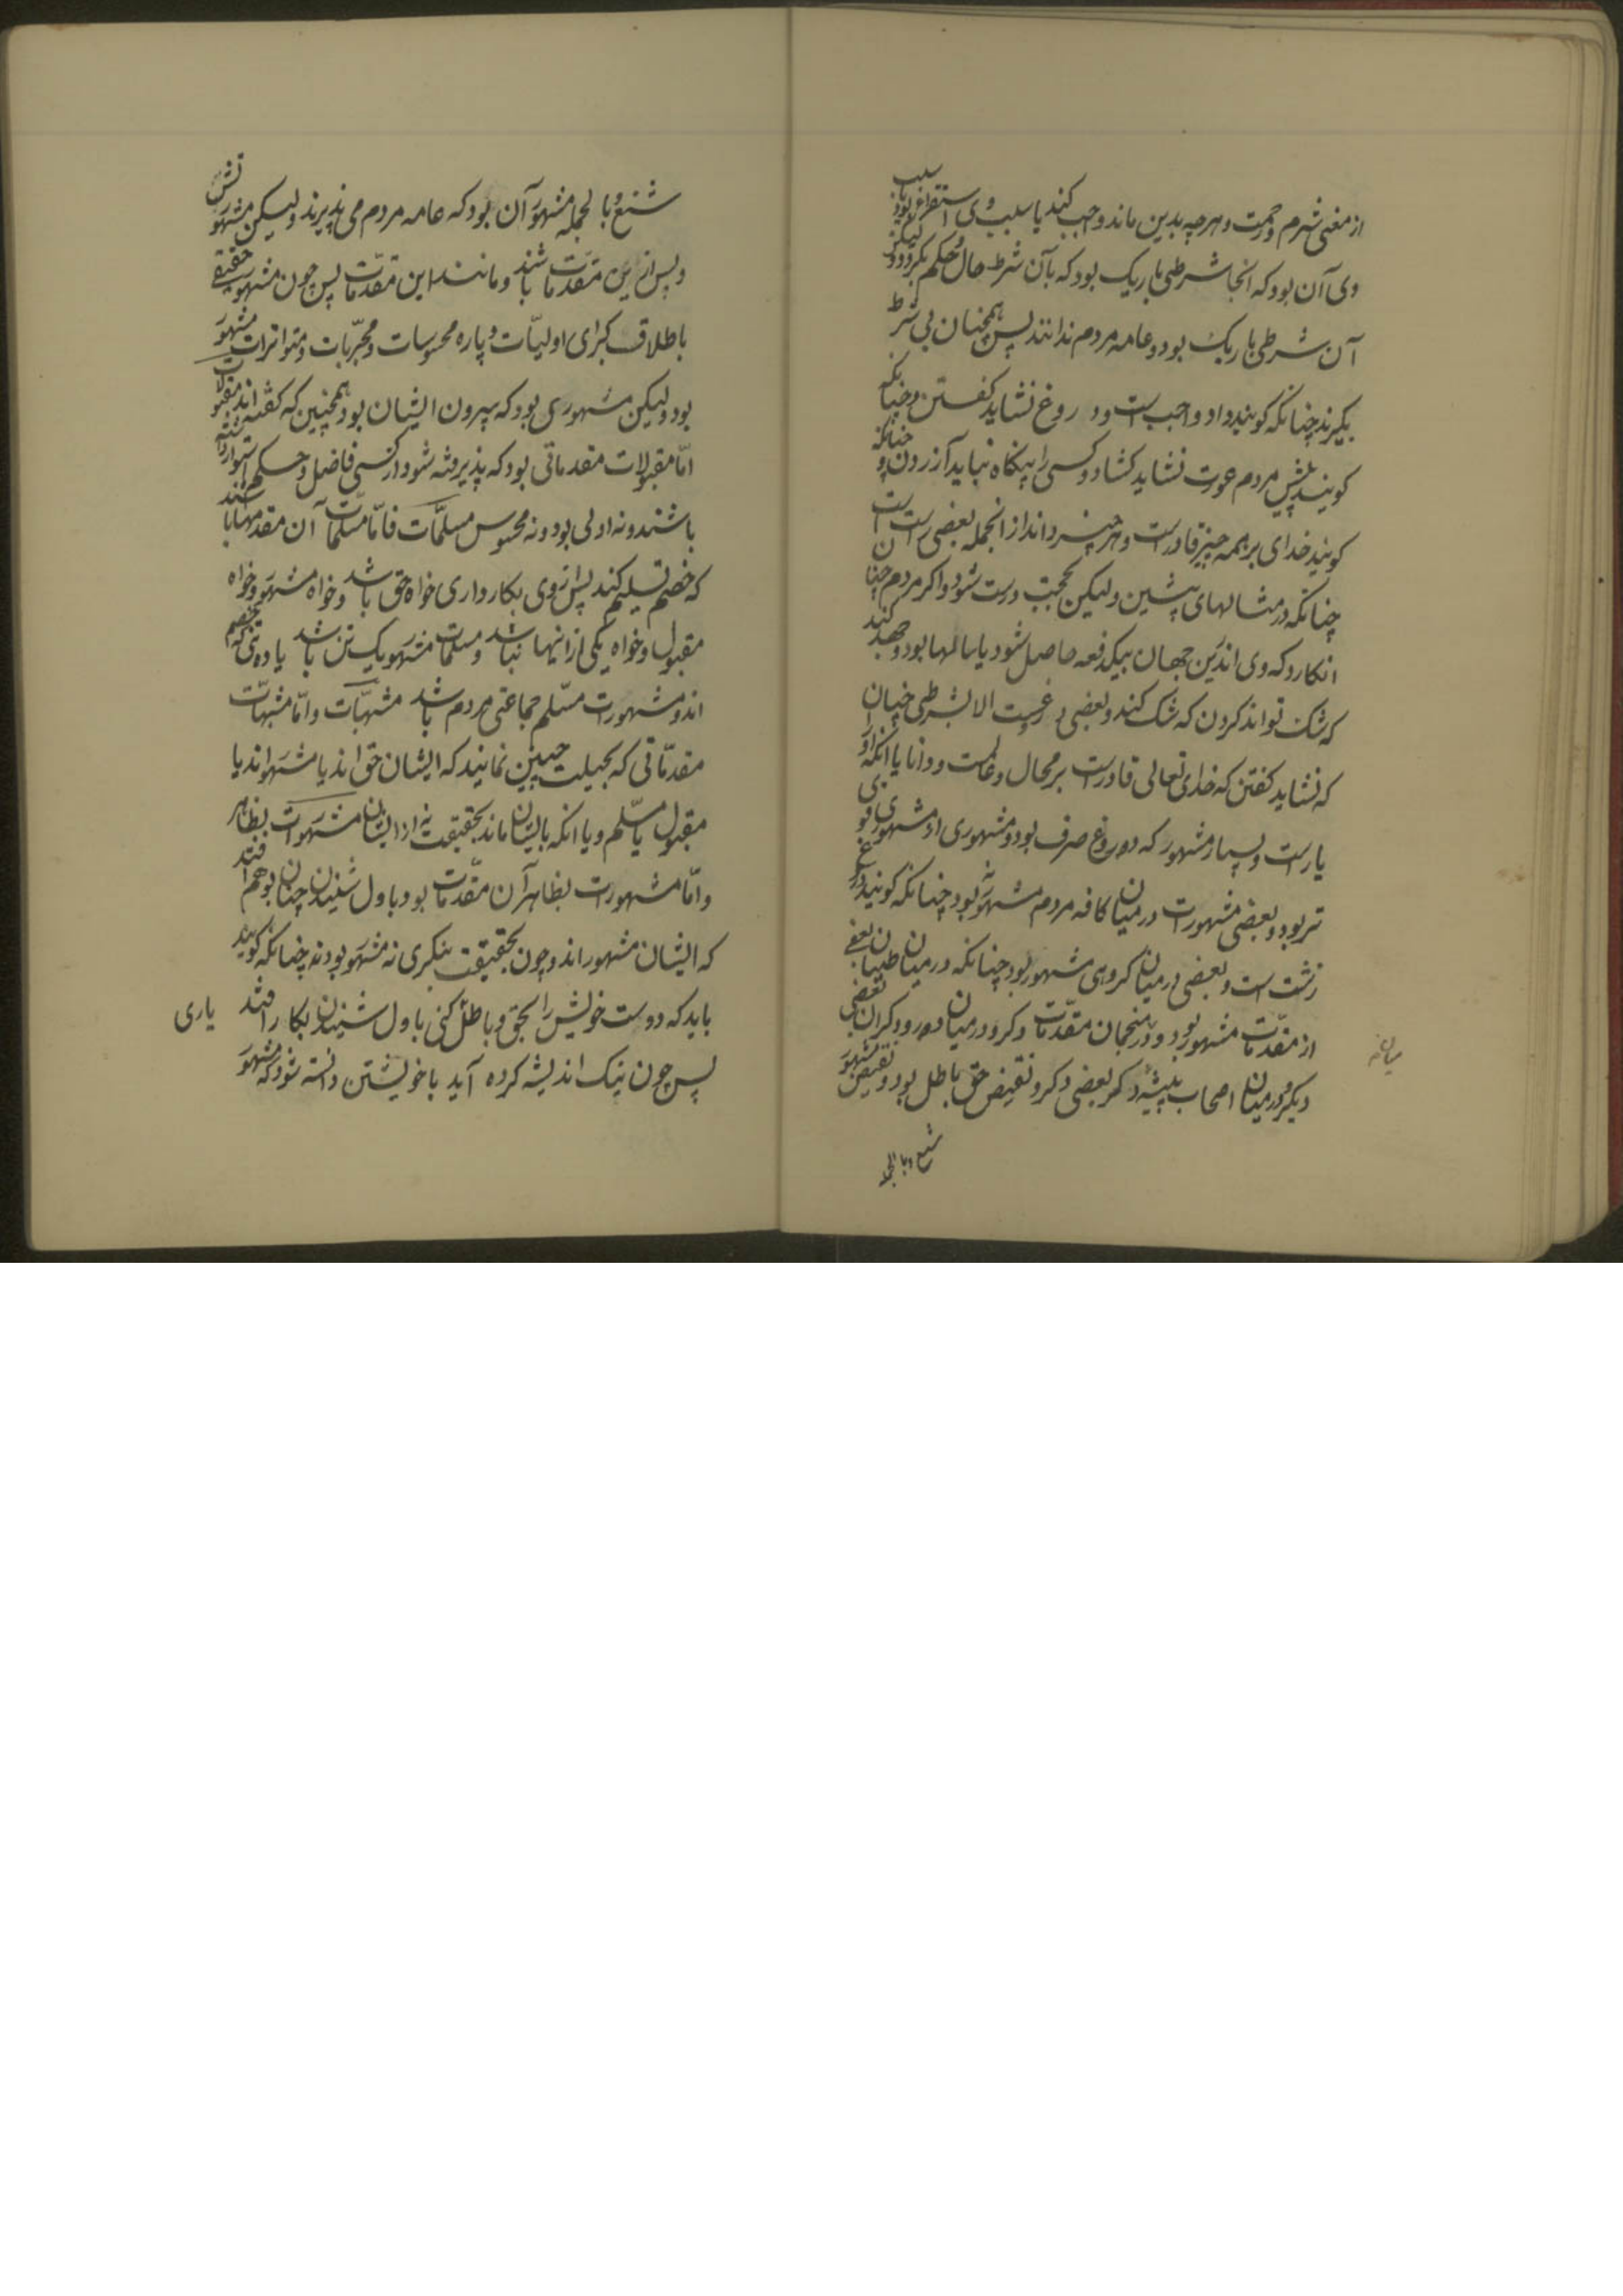 از معنی شرم و حمت و هرچه بدین ماند و حب کند یا سبب وی استقراء بود یا سبب
وی آن بود که انجا شرطی باریک بود که بآن شرط حال حکم بگردد و لیکن
آن شرطی باریک بود و عامه مردم ندانند پس همچنان بی شرط
بگیرند چنانکه گویند داد واجب است و دروغ نشاید گفتن و چنانکه
گویند پیش مردم عورت نشاید گشاد و کسی را بیگناه نباید آزردن و چنانکه
گویند خدای بر همه چیز قادر است و هر چیز داند از انجمله بعضی راست است
چنانکه در مثالهای پیشین ولیکن بحجت درست شود و اگر مردم چنان
انگارد که وی اندرین جهان بیکدفعه حاصل شود یا سالها بود و جهد کند
که شک تواند کردن که شک کند و بعضی دروغست الا بشرطی چنان
که نشاید گفتن که خدای تعالی قادر است بر محال و عالمست و دانا یا آنکه او را
یار است و بسیار مشهور که دروغ صرف بود و مشهوری از مشهوری قوی
تر بود و بعضی مشهورات در میان کافه مردم مشهور بود چنانکه گویند دروغ
زشت است و بعضی در میان گروهی مشهور بود چنانکه در میان طبیبان بعضی
از مقدمات مشهور بود و در منجمان مقدمات دگر و در میان درودگران بعضی
دیگر و در میان اصحاب پیشه دگر بعضی دگر و نقیض حق باطل بود و نقیض مشهور
میان
شنع و بالجمله
شنع و بالجمله مشهور آن بود که عامه مردم می پذیرند ولیکن مشهور
و پس ازین مقدمات باشند و مانند این مقدمات پس چون مشهور حقیقی
باطلاق گیری اولیات و پاره محسوسات و مجربات و متواترات مشهور
بود ولیکن مشهوری بود که بیرون ایشان بود همچنین که گفته اند مقبولات
اما مقبولات مقدماتی بود که پذیرفته شود از کسی فاضل و حکیم استوار داشته
باشند و نه اولی بود و نه محسوس مسلمات فاما مسلمات آن مقدمها باشند
که خصم تسلیم کند پس از وی بکار داری خواه حق باشد و خواه مشهور و خواه
مقبول و خواه یکی از اینها نباشد و مسلمات مشهور یک تن باشد یا ده تن که خصم
اند و مشهورات مسلم جماعتی مردم باشد مشبهات و اما مشبهات
مقدماتی که بحیلت چنین نمایند که ایشان حق اند یا مشهور اند یا
مقبول یا مسلم و یا انکه بایشان ماند بحقیقت نه از ایشان مشهورات بظاهر
و اما مشهورات بظاهر آن مقدمات بود باول شنیدن چنان بوهم افتد
که ایشان مشهور اند و چون بحقیقت بنگری نه مشهور بود نه چنانکه گویند
باید که دوست خویش را بحق و باطل کنی باول شنیدن بکار افتد
یاری
پس چون نیک اندیشه کرده آید با خویشتن دانسته شود که مشهور